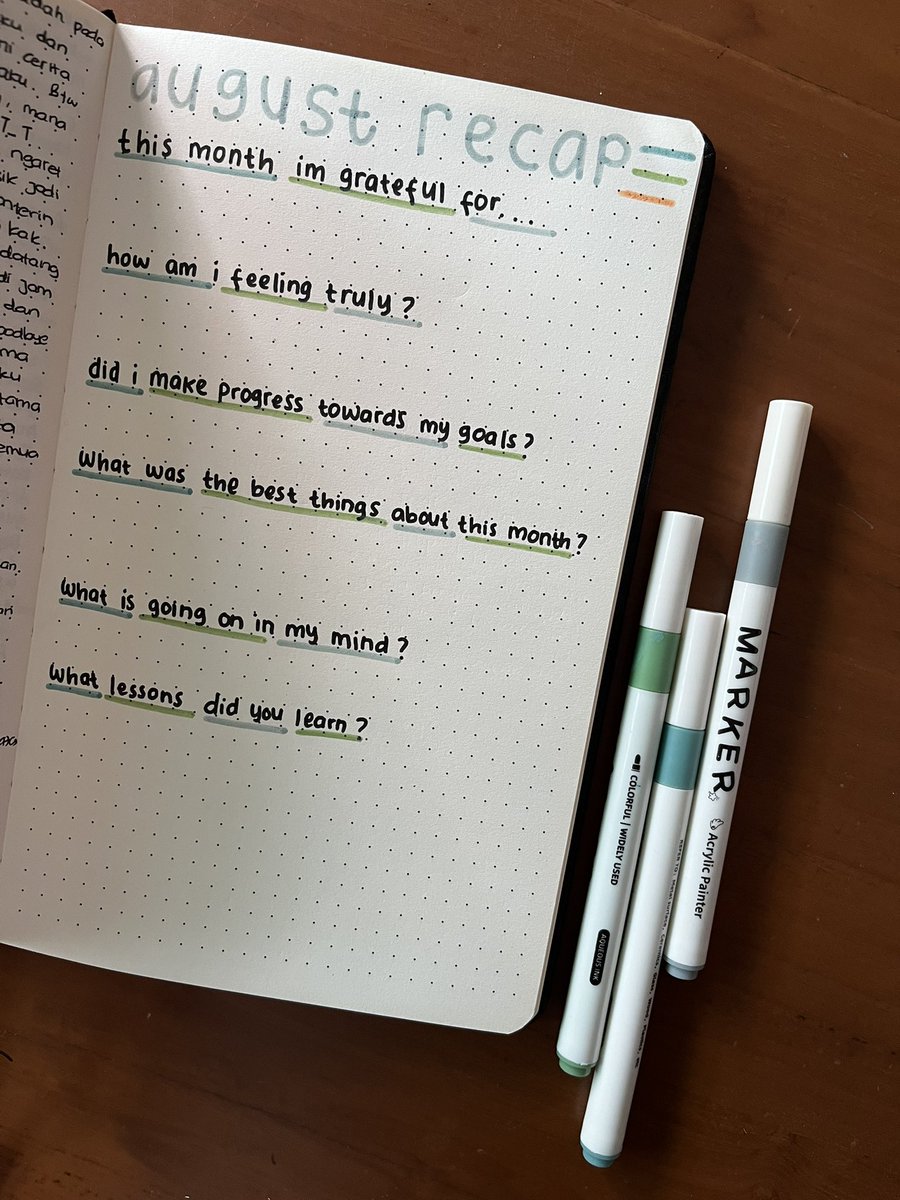 adah pada
ku dan
ni cerita
aku. Btw
, mana
T_T
ngaret
sik jadi
onterin
kak.
datang
di jam
dan
oodbye
ma
ku
tama
ta
emua
an.
ari
august recap
this month im grateful for,...
how am i feeling truly?
did i make progress towards my goals?
What was the best things about this month?
What is going on in my mind?
What lessons did you learn?
COLORFUL | WIDELY USED
AQUEOUS INK
MARKER
Acrylic Painter